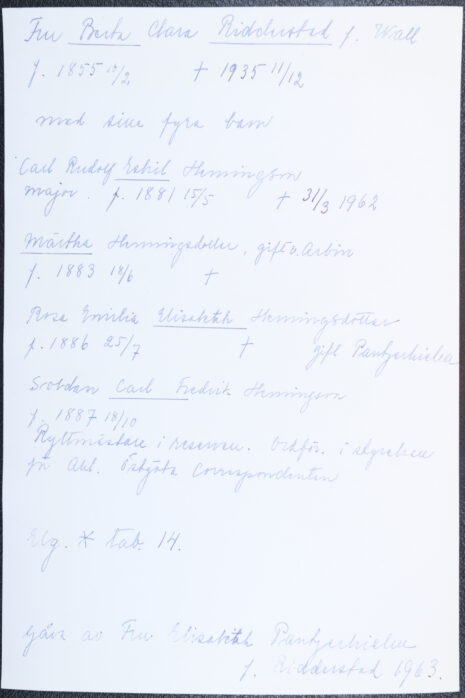 Fru Berta Clara Ridderstad f. Wall
f. 1855 15/2 † 1935 11/12
med sina fyra barn
Carl Rudolf Eskil Hemingson
major. f. 1881 15/5 † 31/3 1962
Märtha Hemingsdotter, gift v. Arbin
f. 1883 18/6 †
Rosa Emilia Elisabeth Hemingsdotter
f. 1886 25/7 † gift Pantzerhielm
Carl Fredrik Hemingson
f. 1887 18/10
Ryttmästare i reserven. Ordför. i styrelsen
för Östgöta Correspondenten
Elg. * tab. 14.
Gåva av Fru Elisabeth Pantzerhielm
f. Ridderstad 1963.